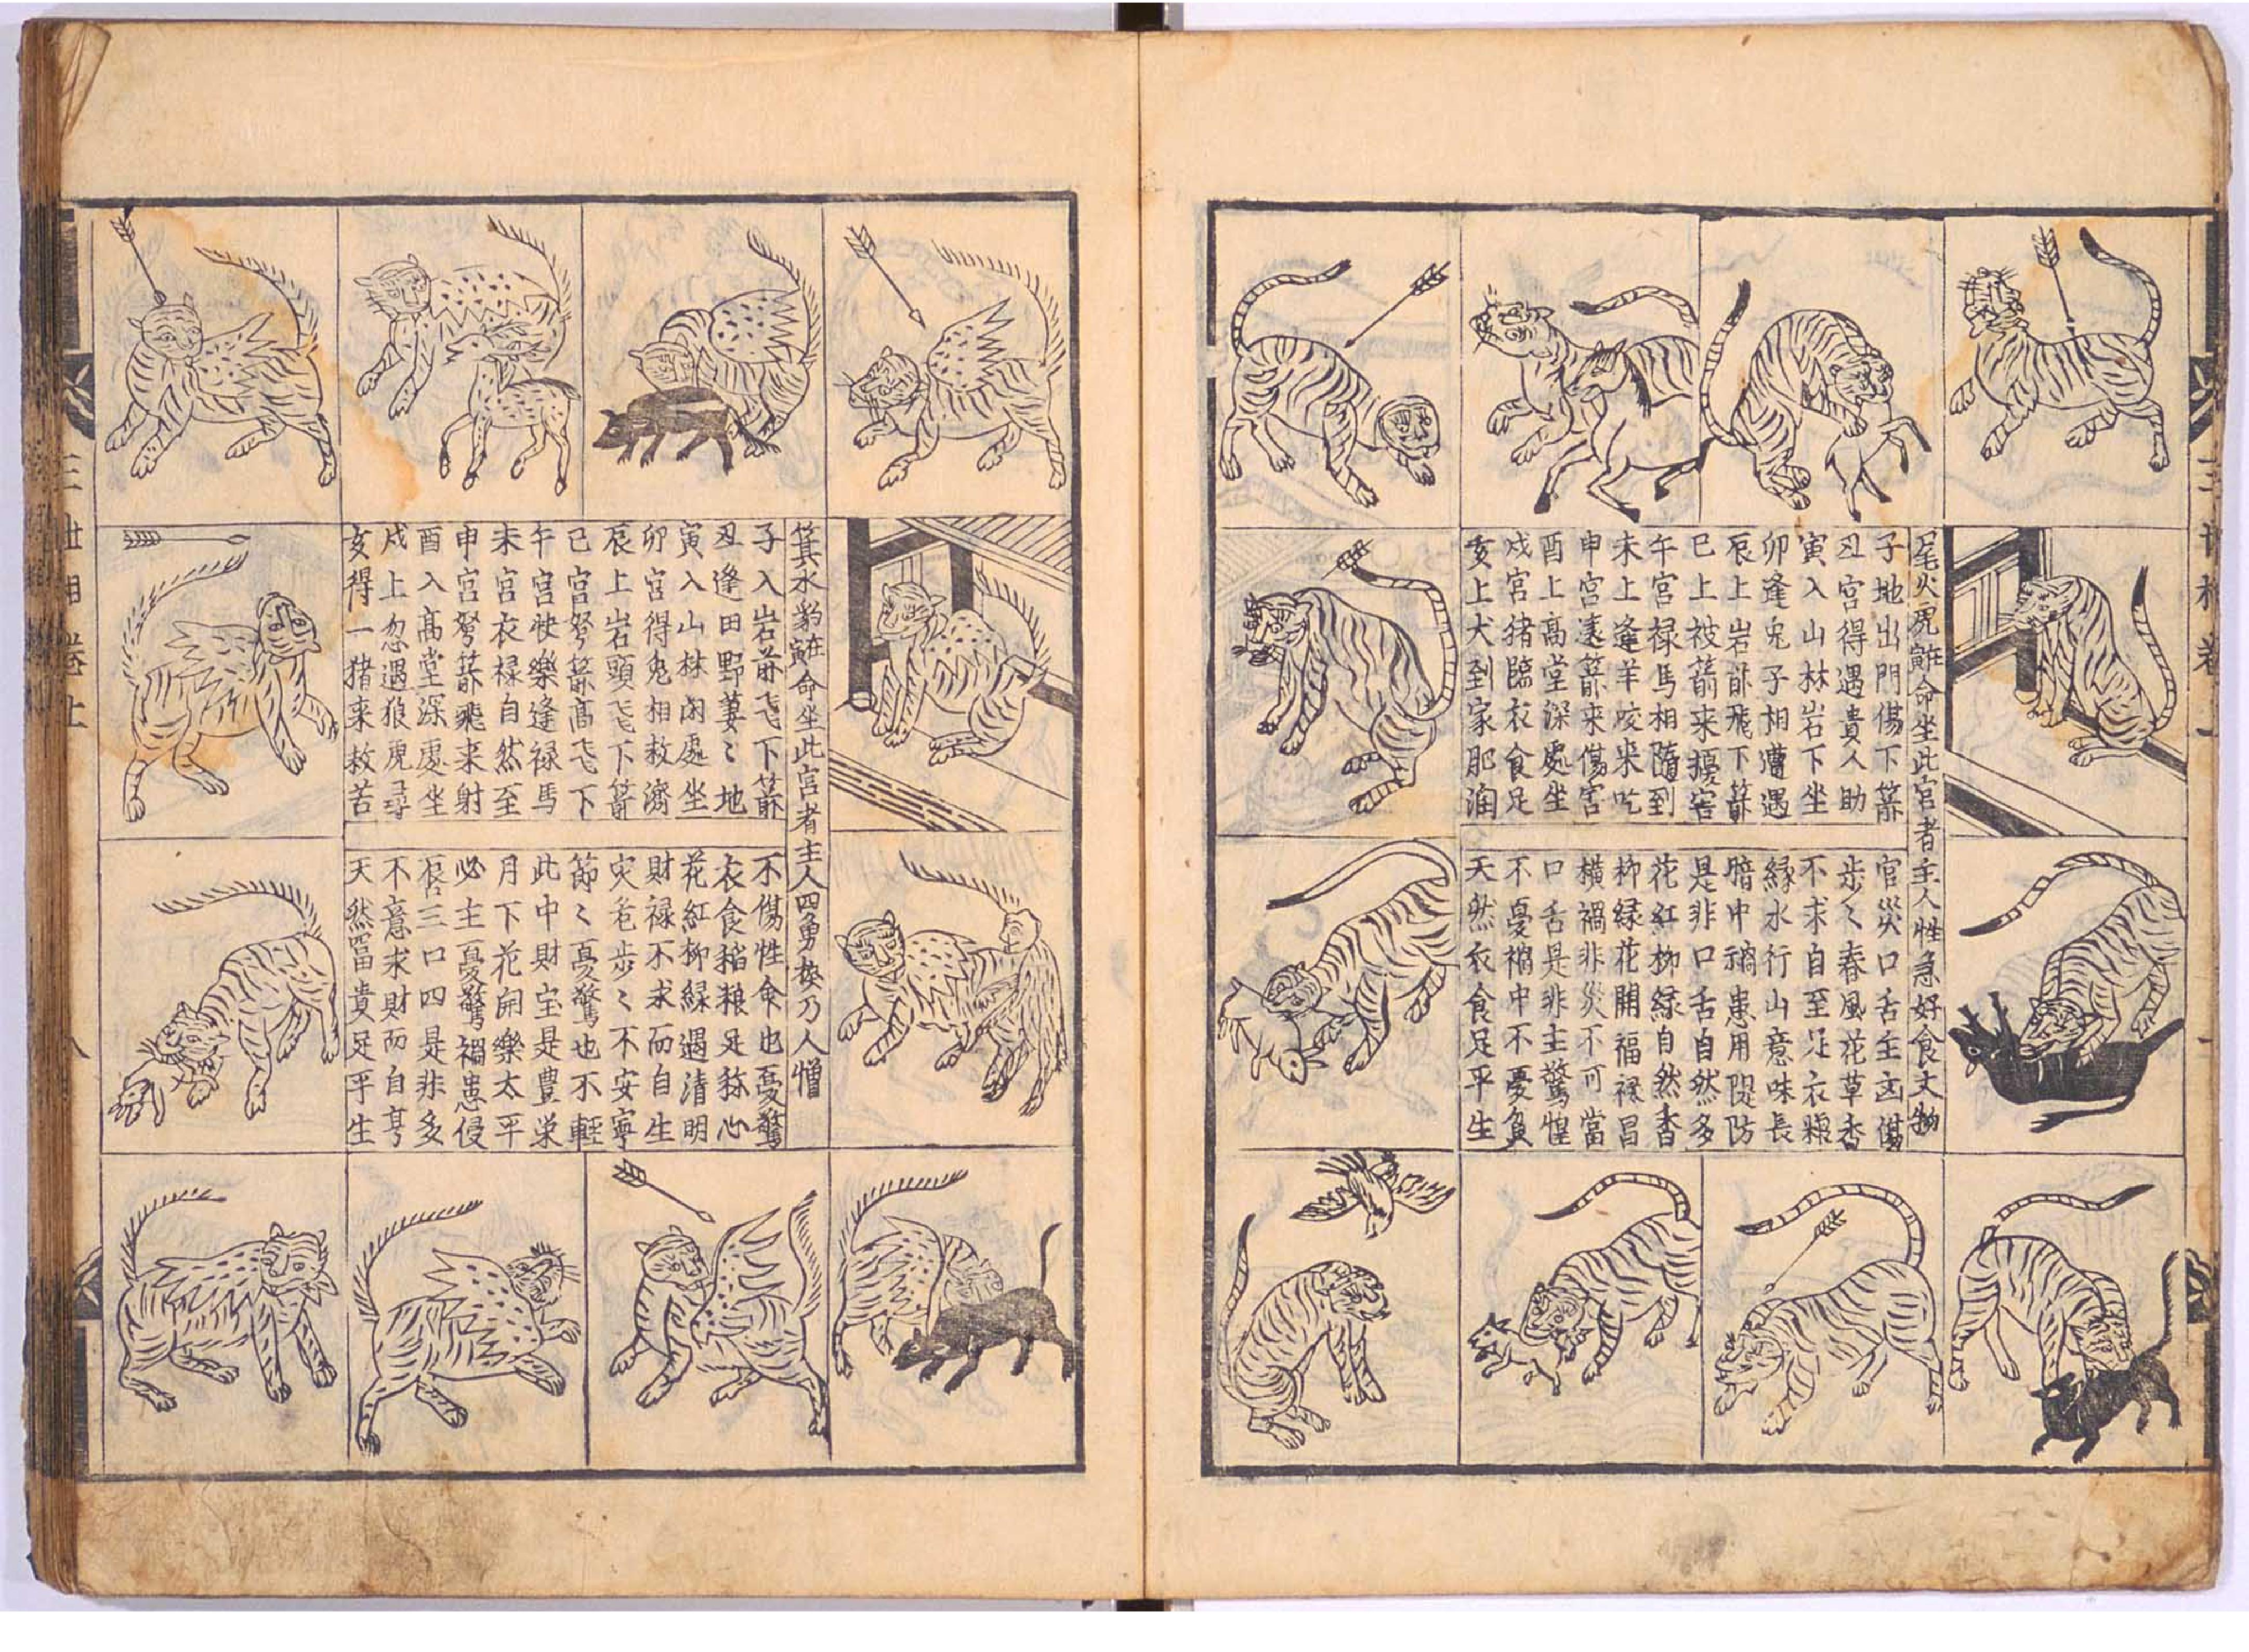 尾火虎在寅命坐此宮者主人性急好食文物
子地出門傷下箭
丑宮得遇貴人助
寅入山林岩下坐
卯逢兎子相遭遇
辰上岩前飛下箭
巳上被箭来擾害
午宮禄馬相隨到
未上逢羊咬来吃
申宮遠箭來傷害
酉上高堂深處坐
戌宮猪臨衣食足
亥上犬到家肥潤
官災口舌主凶傷
步〻春風花草香
不求自至足衣粮
緑水行山意味長
暗中禍患用隄防
是非口舌自然多
花紅柳緑自然香
柳緑花開福禄昌
横禍非災不可當
口舌是非主驚惶
不憂禍中不憂負
天然衣食足平生
三世相卷上
箕水豹在寅命坐此宮者主人四勇 乃人憎
子入岩前飛下箭
丑逢田野萋〻地
寅入山林閑處坐
卯宮得兎相救濟
辰上岩頭飛下箭
巳宮弩箭高飛下
午宮快樂逢禄馬
未宮衣禄自然至
申宮弩箭飛来射
酉入高堂深處坐
戌上忽遇狼虎尋
亥得一猪来救苦
不傷性命也憂驚
衣食稻粮足称心
花紅柳緑遇清明
財禄不求而自生
災危步〻不安寧
節〻憂驚也不輕
此中財宝是豊栄
月下花開樂太平
必主憂驚禍患侵
唇三口四是非多
不意求財而自亨
天然富貴足平生
三世相卷上
八